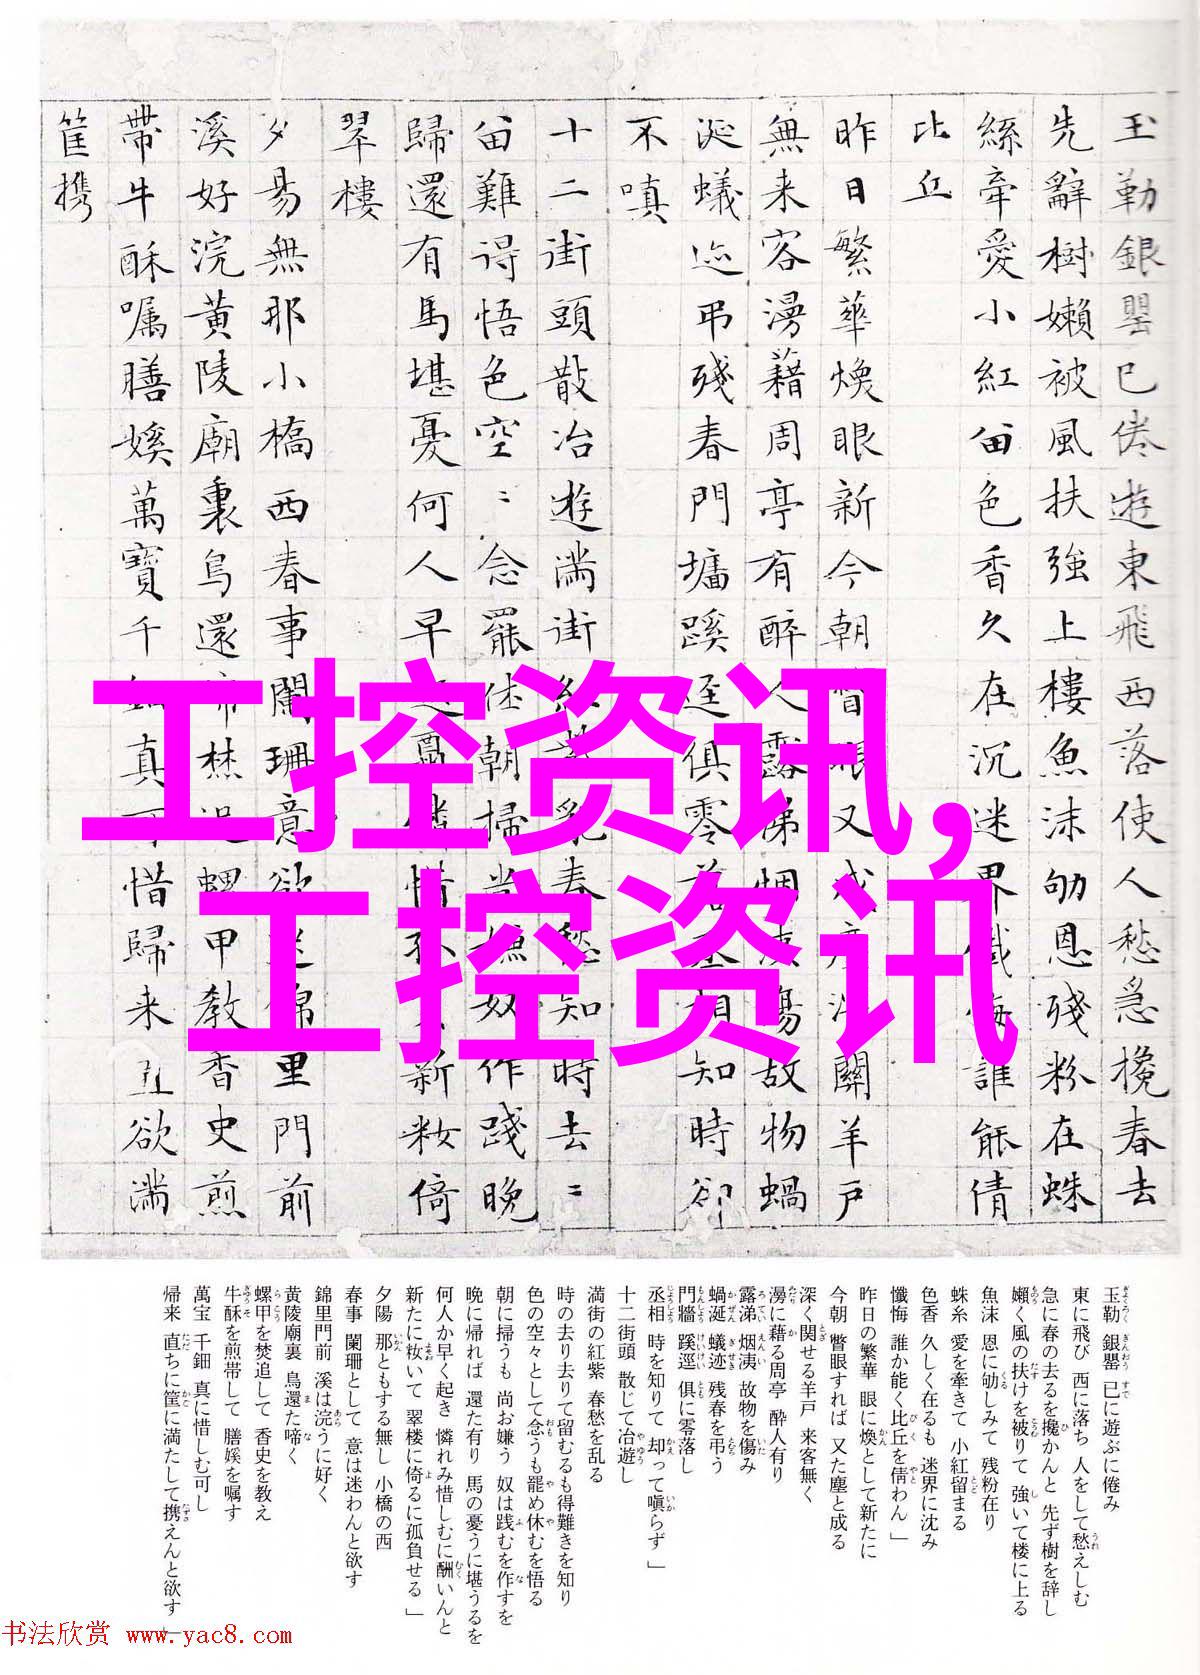 玉勒銀罌已倦遊東飛西落使人愁急攙春去
先辭樹嬾被風扶強上樓魚沫劬恩殘粉在蛛
絲牽愛小紅留色香久在沉迷界懺悔誰能倩
比丘
昨日繁華煥眼新今朝瞥眼又成塵深關羊戶
無来客漫藉周亭有醉人露涕烟洟傷故物蝸
涎蟻迹弔殘春門墻蹊逕俱零落丞相知時卻
不嗔
十二街頭散冶遊滿街紅紫亂春愁知時去〻
留難得悟色空〻念罷休朝掃尚嫌奴作踐晚
歸還有馬堪憂何人早起憐惜孤新粧倚
翠樓
夕昜無那小橋西春事闌珊意欲迷錦里門前
溪好浣黃陵廟裏鳥還啼焚追螺甲教香史煎
帶牛酥嘱膳媛萬寶千鈿真可惜歸来直欲滿
筐携
工控资讯,
工控资讯
玉勒 銀罌 已に遊ぶに倦み
東に飛び 西に落ち 人をして愁えしむ
急に春の去るを攙かんと 先ず樹を辞し
嬾く風の扶けを被りて 強いて楼に上る
魚沫 恩に劬しみて 残粉在り
蛛糸 愛を牽きて 小紅留まる
色香 久しく在るも 迷界に沈み
懺悔 誰か能く比丘を倩わん」
昨日の繁華 眼に煥として新たに
今朝 瞥眼すれば 又た塵と成る
深く関せる羊戸 来客無く
漫に藉る周亭 酔人有り
露涕 烟洟 故物を傷み
蝸涎 蟻迹 残春を弔う
門牆 蹊逕 俱に零落し
丞相 時を知りて 却って嗔らず」
十二街頭 散じて冶遊し
満街の紅紫 春愁を乱る
時の去り去りて留むるも得難きを知り
色の空々として念うも罷め休むを悟る
朝に掃うも 尚お嫌う 奴は践むを作すを
晩に帰れば 還た有り 馬の憂うに堪うるを
何人か早く起き 憐れみ惜しむに酬いんと
新たに妝いて 翠楼に倚るに孤負せる」
夕陽 那ともする無し 小橋の西
春事 闌珊として 意は迷わんと欲す
錦里門前 溪は浣うに好く
黄陵廟裏 鳥還た啼く
螺甲を焚追して 香史を教え
牛酥を煎帯して 膳媛を嘱す
萬宝 千鈿 真に惜しむ可し
帰来 直ちに筐に満たして携えんと欲す」
书法欣赏 www.yac8.com